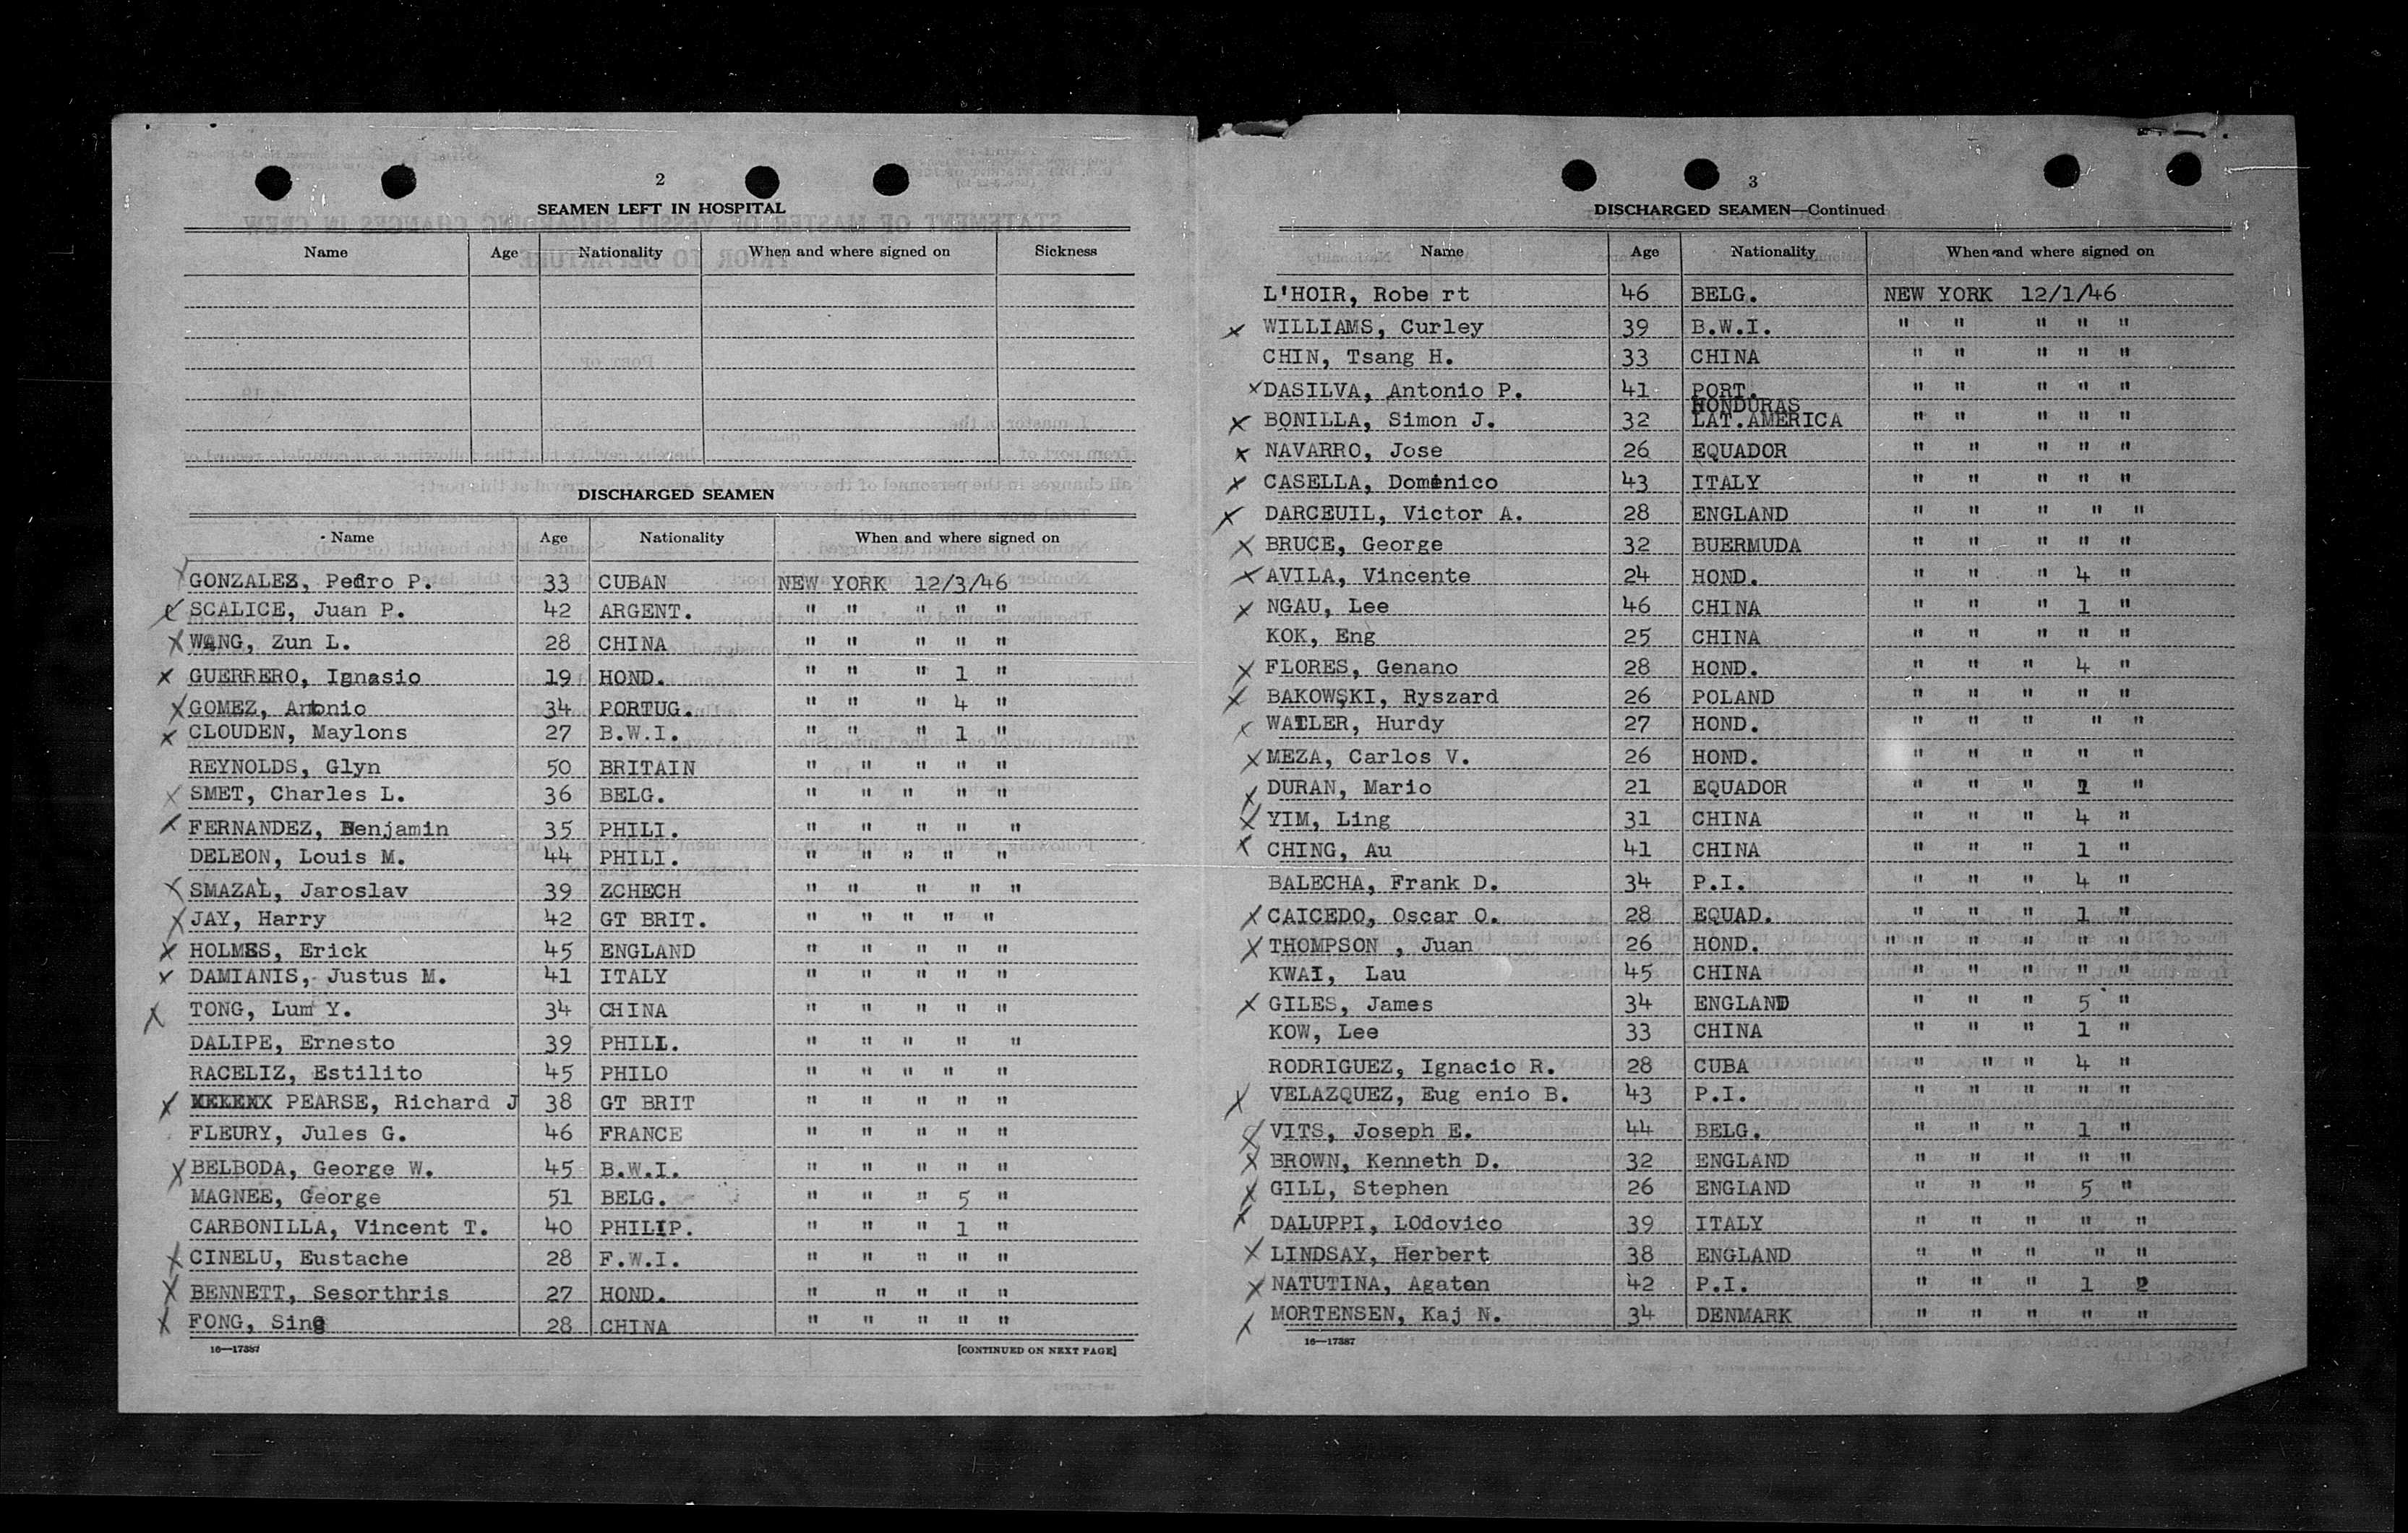 2
SEAMEN LEFT IN HOSPITAL
Name Age Nationality When and where signed on Sickness
DISCHARGED SEAMEN
Name Age Nationality When and where signed on
GONZALEZ, Pedro P. 33 CUBAN NEW YORK 12/3/46
SCALICE, Juan P. 42 ARGENT. " " " " "
WANG, Zun L. 28 CHINA " " " " "
GUERRERO, Ignasio 19 HOND. " " " 1 "
GOMEZ, Antonio 34 PORTUG. " " " 4 "
CLOUDEN, Maylons 27 B.W.I. " " " 1 "
REYNOLDS, Glyn 50 BRITAIN " " " " "
SMET, Charles L. 36 BELG. " " " " "
FERNANDEZ, Benjamin 35 PHILI. " " " " "
DELEON, Louis M. 44 PHILI. " " " " "
SMAZAL, Jaroslav 39 ZCHECH " " " " "
JAY, Harry 42 GT BRIT. " " " " "
HOLMES, Erick 45 ENGLAND " " " " "
DAMIANIS, Justus M. 41 ITALY " " " " "
TONG, Lum Y. 34 CHINA " " " " "
DALIPE, Ernesto 39 PHILI. " " " " "
RACELIZ, Estilito 45 PHILO " " " " "
PEARSE, Richard J 38 GT BRIT " " " " "
FLEURY, Jules G. 46 FRANCE " " " " "
BELBODA, George W. 45 B.W.I. " " " " "
MAGNEE, George 51 BELG. " " " 5 "
CARBONILLA, Vincent T. 40 PHILIP. " " " 1 "
CINELU, Eustache 28 F.W.I. " " " " "
BENNETT, Sesorthris 27 HOND. " " " " "
FONG, Sing 28 CHINA " " " " "
16—17387 [CONTINUED ON NEXT PAGE]
3
DISCHARGED SEAMEN—Continued
Name Age Nationality When and where signed on
L'HOIR, Robe rt 46 BELG. NEW YORK 12/1/46
WILLIAMS, Curley 39 B.W.I. " " " " "
CHIN, Tsang H. 33 CHINA " " " " "
DASILVA, Antonio P. 41 PORT. " " " " "
HONDURAS
BONILLA, Simon J. 32 LAT.AMERICA " " " " "
NAVARRO, Jose 26 EQUADOR " " " " "
CASELLA, Domenico 43 ITALY " " " " "
DARCEUIL, Victor A. 28 ENGLAND " " " " "
BRUCE, George 32 BUERMUDA " " " " "
AVILA, Vincente 24 HOND. " " " 4 "
NGAU, Lee 46 CHINA " " " 1 "
KOK, Eng 25 CHINA " " " " "
FLORES, Genano 28 HOND. " " " 4 "
BAKOWSKI, Ryszard 26 POLAND " " " " "
WATLER, Hurdy 27 HOND. " " " " "
MEZA, Carlos V. 26 HOND. " " " " "
DURAN, Mario 21 EQUADOR " " " 1 "
YIM, Ling 31 CHINA " " " 4 "
CHING, Au 41 CHINA " " " 1 "
BALECHA, Frank D. 34 P.I. " " " 4 "
CAICEDO, Oscar O. 28 EQUAD. " " " 1 "
THOMPSON , Juan 26 HOND. " " " " " "
KWAI, Lau 45 CHINA " " " " "
GILES, James 34 ENGLAND " " " 5 "
KOW, Lee 33 CHINA " " " 1 "
RODRIGUEZ, Ignacio R. 28 CUBA " " " 4 "
VELAZQUEZ, Eug enio B. 43 P.I. " " " " "
VITS, Joseph E. 44 BELG. " " " 1 "
BROWN, Kenneth D. 32 ENGLAND " " " " "
GILL, Stephen 26 ENGLAND " " " 5 "
DALUPPI, LOdovico 39 ITALY " " " " "
LINDSAY, Herbert 38 ENGLAND " " " " "
NATUTINA, Agaton 42 P.I. " " " 1 2
MORTENSEN, Kaj N. 34 DENMARK " " " " "
16—17387